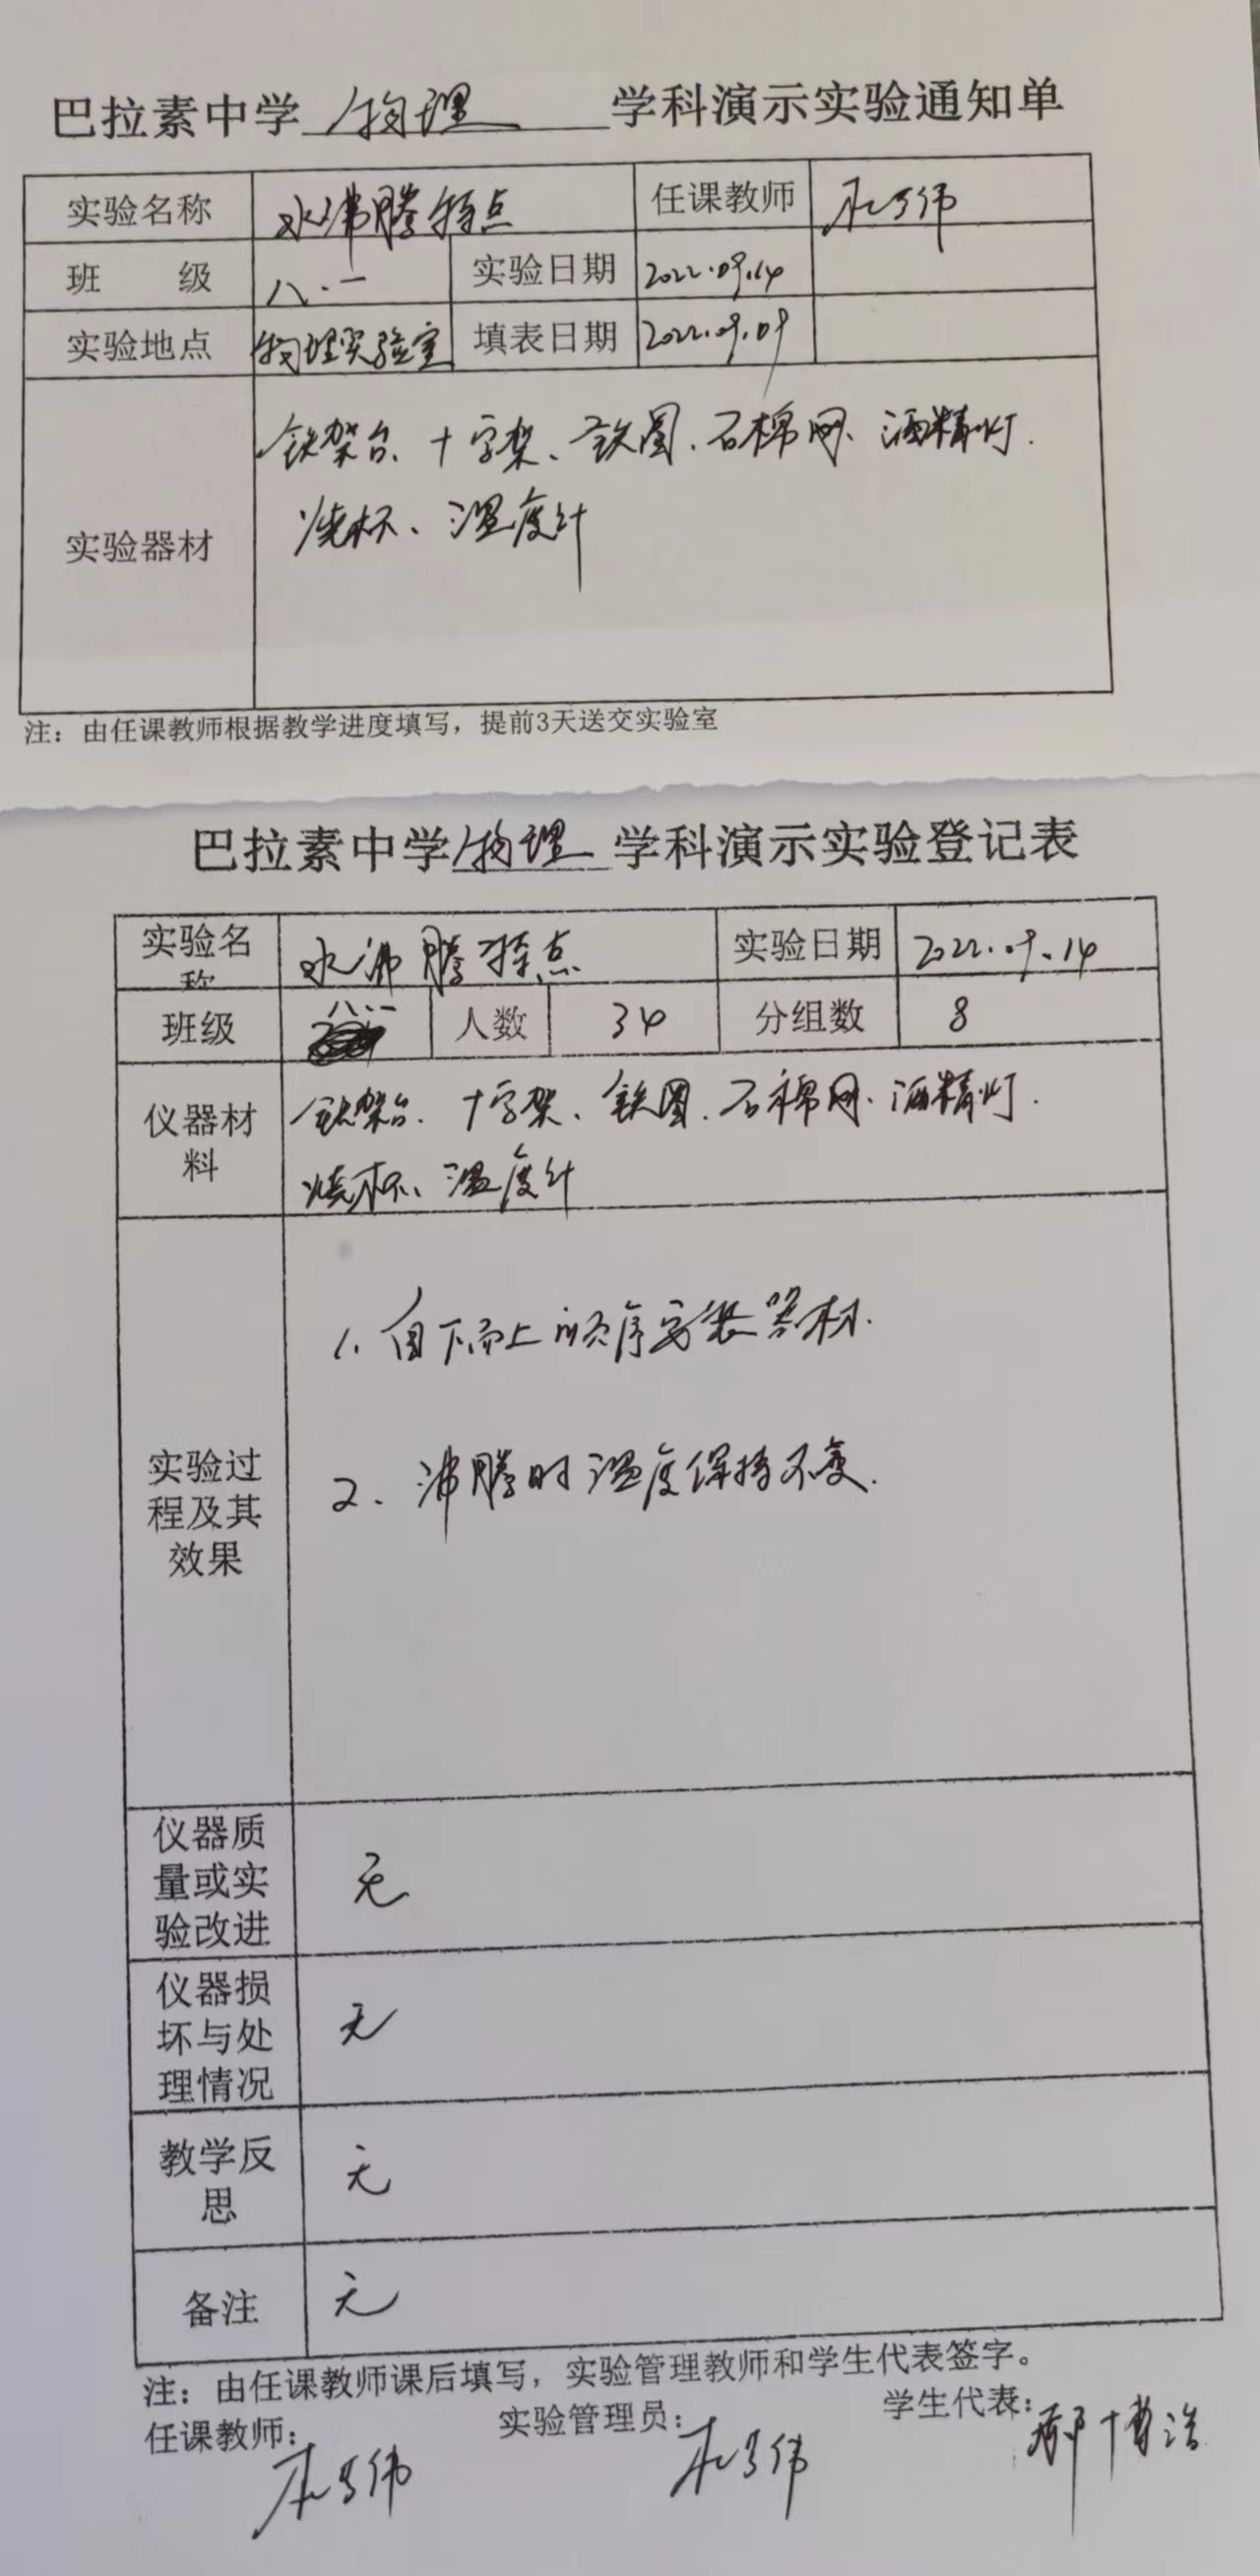 巴拉素中学 物理 学科演示实验通知单
实验名称 水沸腾特点 任课教师
班 级 八.一 实验日期 2022.09.14
实验地点 物理实验室 填表日期 2022.09.09
铁架台、十字架、铁圈、石棉网、酒精灯.
烧杯、温度计
实验器材
注：由任课教师根据教学进度填写，提前3天送交实验室
巴拉素中学 物理 学科演示实验登记表
实验名
称 水沸腾特点 实验日期 2022.09.14
班级 八.一 人数 34 分组数 8
仪器材
料
铁架台、十字架、铁圈、石棉网、酒精灯.
烧杯、温度计
实验过
程及其
效果
1. 自下而上顺序安装器材.
2. 沸腾时温度保持不变.
仪器质
量或实
验改进
无
仪器损
坏与处
理情况
无
教学反
思
无
备注 无
注：由任课教师课后填写，实验管理教师和学生代表签字。
任课教师： 实验管理员： 学生代表：